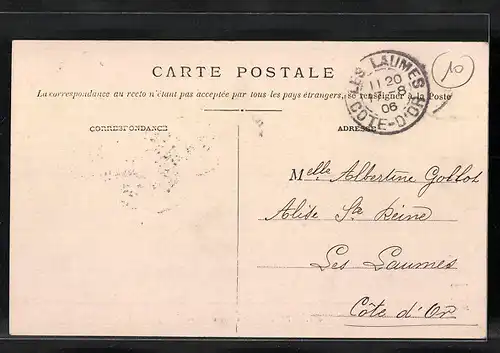 CARTE POSTALE
La correspondance au recto n'étant pas acceptée par tous les pays étrangers, se renseigner à la Poste
CORRESPONDANCE
ADRESSE
LES LAUMES
11 20
8
06
CÔTE-D'OR
10
Melle Albertine Gollot
Alise Ste Reine
Les Laumes
Côte d'Or